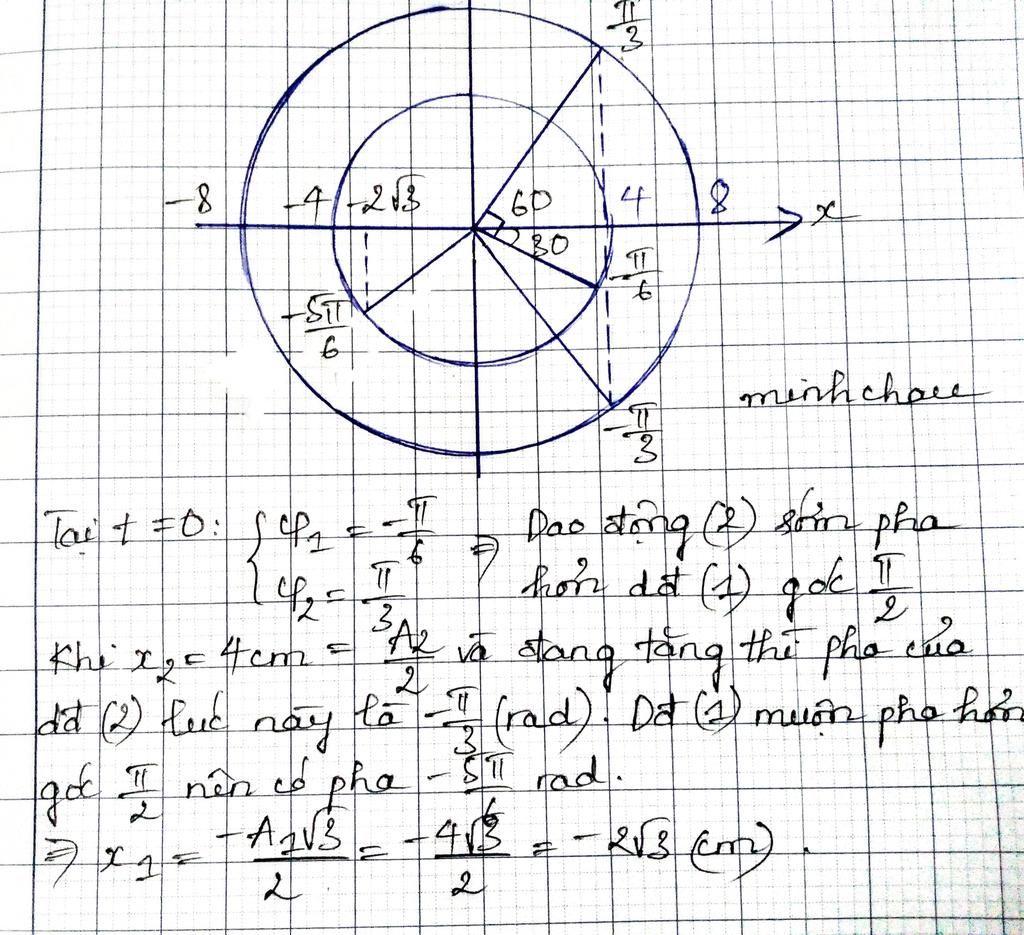 π/3
-8 -4 -2√3 60 4 8 x
30
-π/6
-5π/6
minhchau
-π/3
Tại t = 0: { φ1 = -π/6 ⇒ Dao động (2) sớm pha
φ2 = π/3 hơn dđ (1) góc π/2
Khi x2 = 4cm = A2/2 và đang tăng thì pha của
dđ (2) lúc này là -π/3 (rad). Dđ (1) muộn pha hơn
góc π/2 nên có pha -5π/6 rad.
⇒ x1 = -A1√3/2 = -4√3/2 = -2√3 (cm).